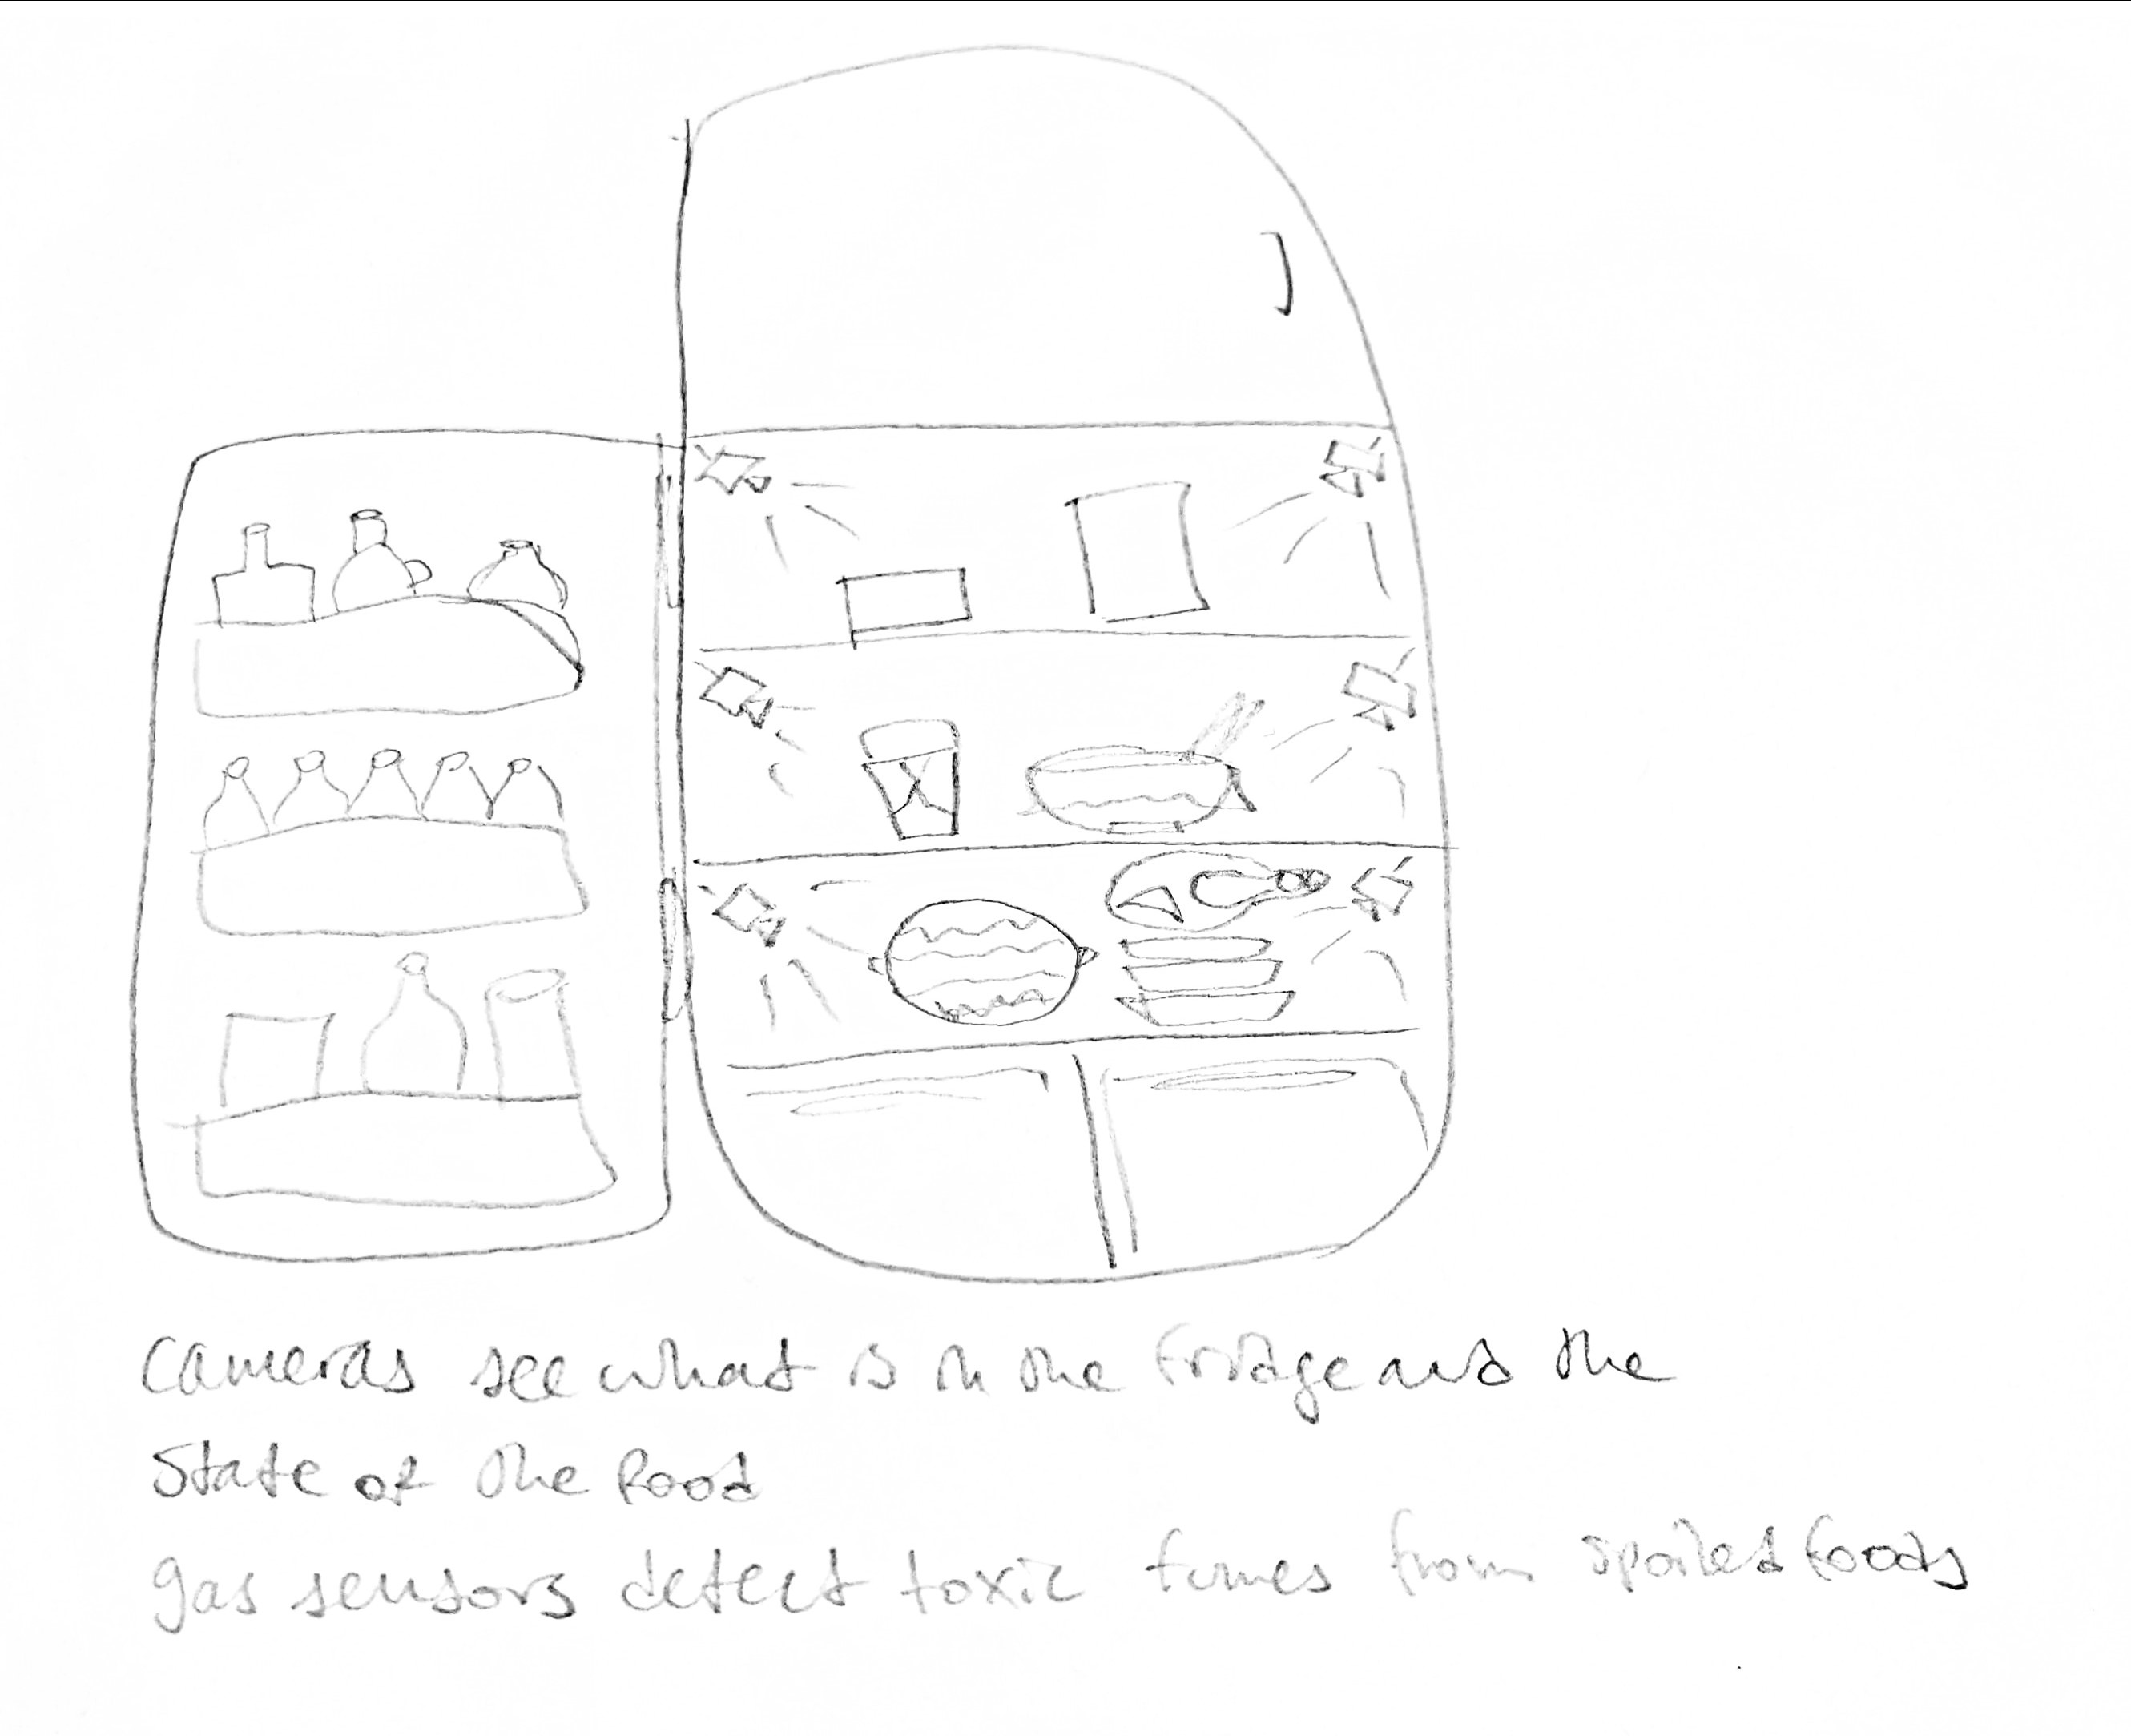 cameras see what is in the fridge and the
state of the food
gas sensors detect toxic fumes from spoiled foods